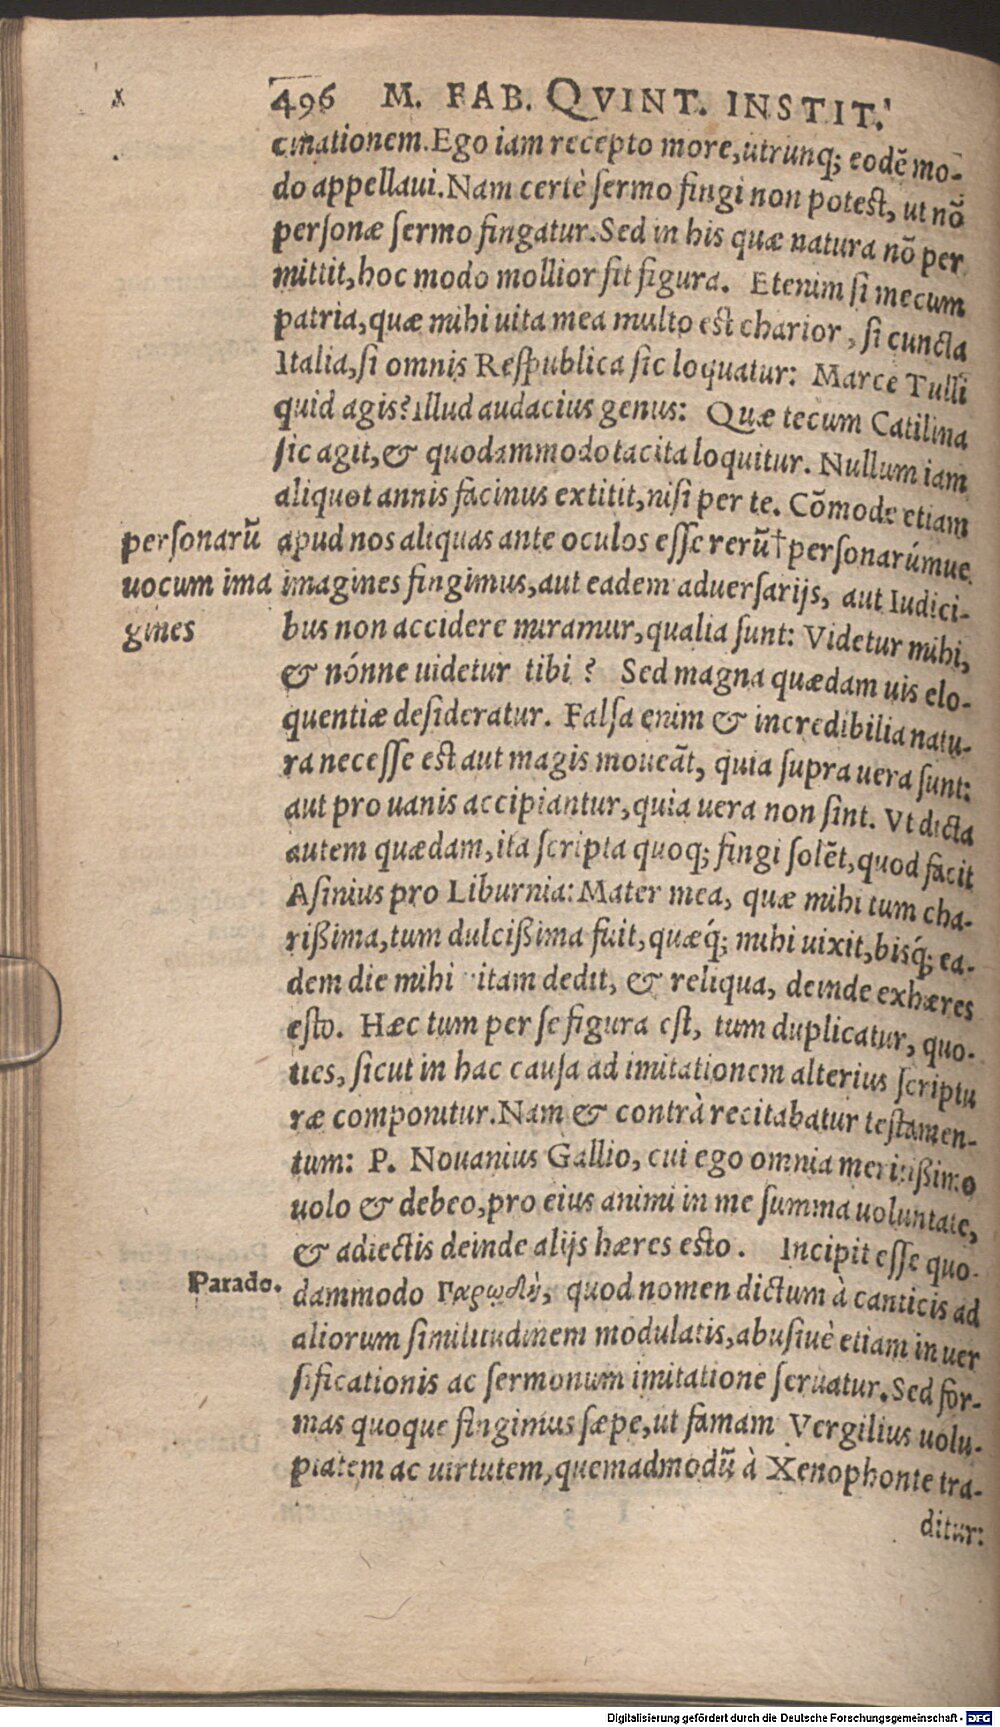 496 M. FAB. QVINT. INSTIT.
cinationem. Ego iam recepto more, utrunq; eodē mo-
do appellaui. Nam certè sermo fingi non potest, ut nō
personæ sermo fingatur. Sed in his quæ natura nō per
mittit, hoc modo mollior fit figura. Etenim si mecum
patria, quæ mihi uita mea multo est charior, si cuncta
Italia, si omnis Respublica sic loquatur: Marce Tulli
quid agis? illud audacius genus: Quæ tecum Catilina
sic agit, & quodammodo tacita loquitur. Nullum iam
aliquot annis facinus extitit, nisi per te. Cōmode etiam
personarū
uocum ima
gines
apud nos aliquas ante oculos esse rerū† personarúmue
imagines fingimus, aut eadem aduersarijs, aut Iudici-
bus non accidere miramur, qualia sunt: Videtur mihi,
& nónne uidetur tibi? Sed magna quædam uis elo-
quentiæ desideratur. Falsa enim & incredibilia natu-
ra necesse est aut magis moueāt, quia supra uera sunt:
aut pro uanis accipiantur, quia uera non sint. Vt dicta
autem quædam, ita scripta quoq; fingi solēt, quod facit
Asinius pro Liburnia: Mater mea, quæ mihi tum cha-
rißima, tum dulcißima fuit, quæq́; mihi uixit, bisq́; ea-
dem die mihi itam dedit, & reliqua, deinde exhæres
esto. Hæc tum per se figura est, tum duplicatur, quo-
ties, sicut in hac causa ad imitationem alterius scriptu
ræ componitur. Nam & contrà recitabatur testamen-
tum: P. Nouanius Gallio, cui ego omnia meritißimo
uolo & debeo, pro eius animi in me summa uoluntate,
& adiectis deinde alijs hæres esto. Incipit esse quo-
Parado.
dammodo Παρῳδὴ, quod nomen dictum à canticis ad
aliorum similitudinem modulatis, abusiuè etiam in uer
sificationis ac sermonum imitatione seruatur. Sed for-
mas quoque fingimus sæpe, ut famam Vergilius uolu-
ptatem ac uirtutem, quemadmodū à Xenophonte tra-
ditur:
Digitalisierung gefördert durch die Deutsche Forschungsgemeinschaft - DFG